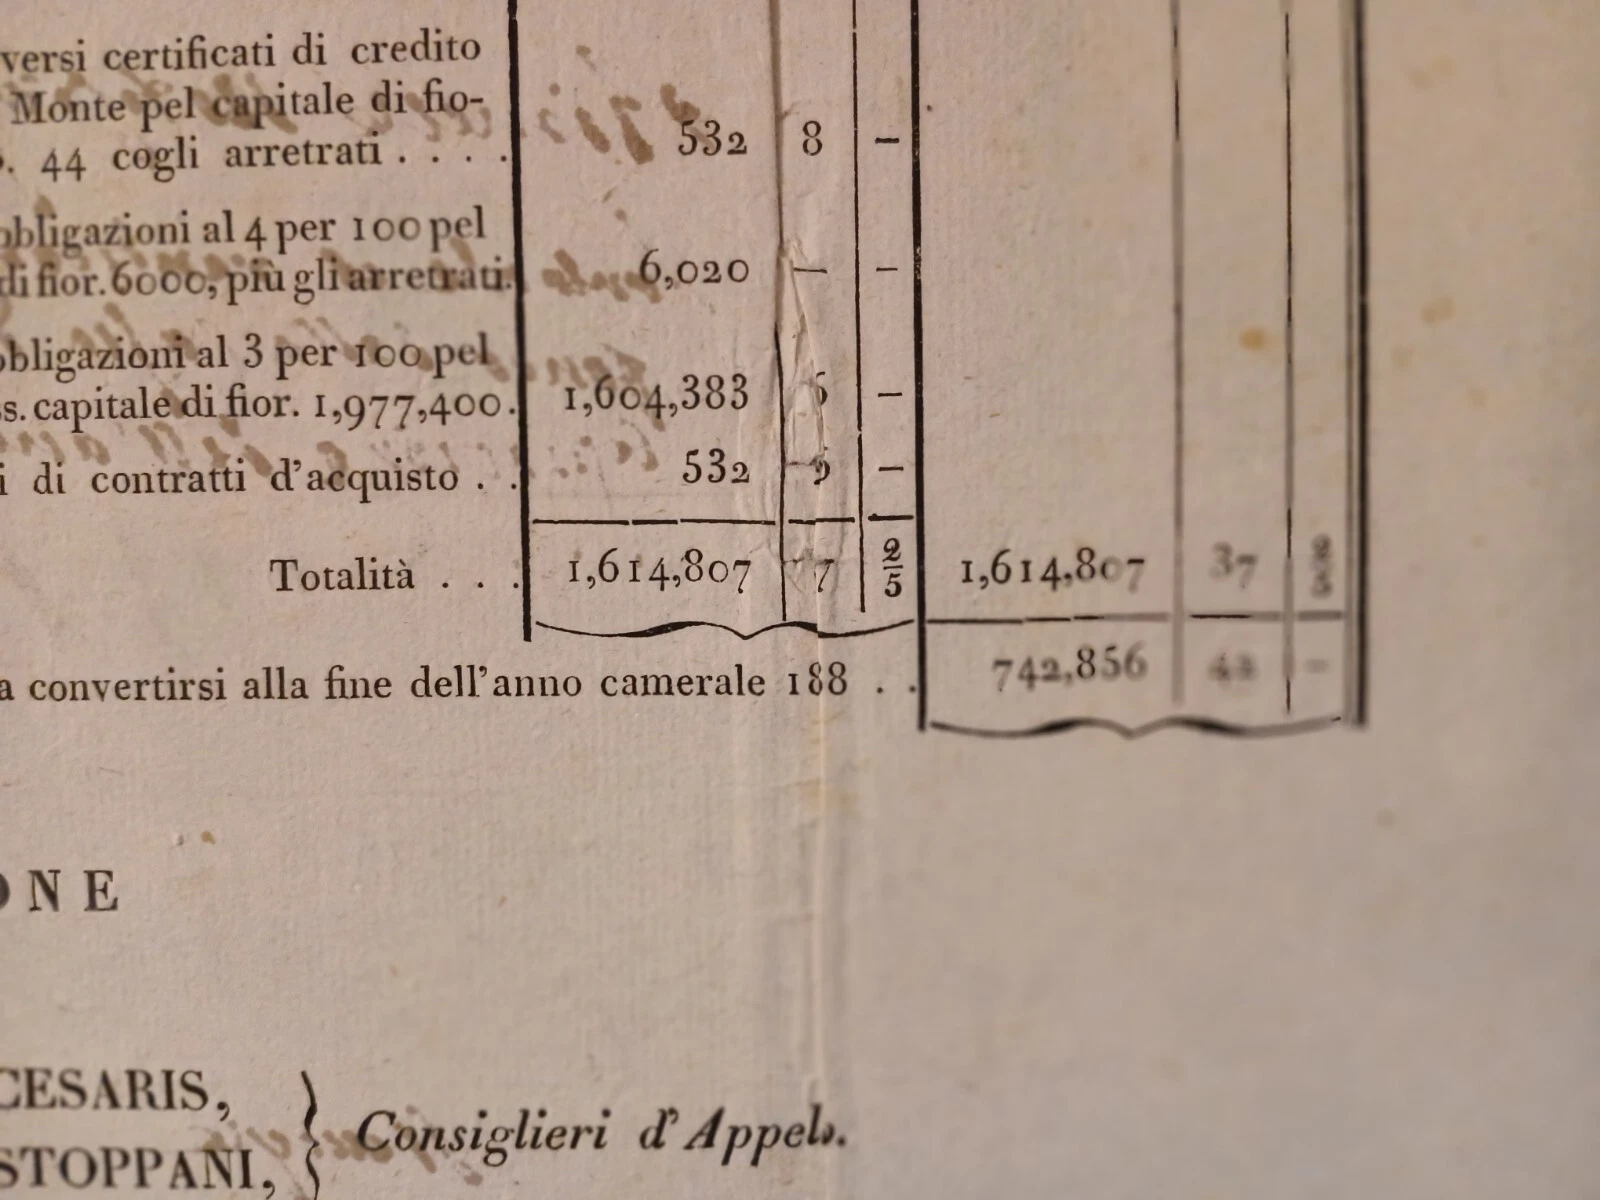 versi certificati di credito
Monte pel capitale di fio-
. 44 cogli arretrati . . . . 532 8 –
obbligazioni al 4 per 100 pel
di fior. 6000, più gli arretrati. 6,020 — –
obbligazioni al 3 per 100 pel
s. capitale di fior. 1,977,400. 1,604,383 –
i di contratti d'acquisto . . 532 –
Totalità . . . 1,614,807 7 2/5 1,614,807 37 2/5
a convertirsi alla fine dell'anno camerale 188 . . 742,856 –
ONE
CESARIS,
STOPPANI,
Consiglieri d'Appello.